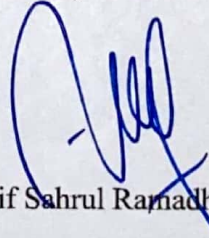 if Sahrul Ramadh